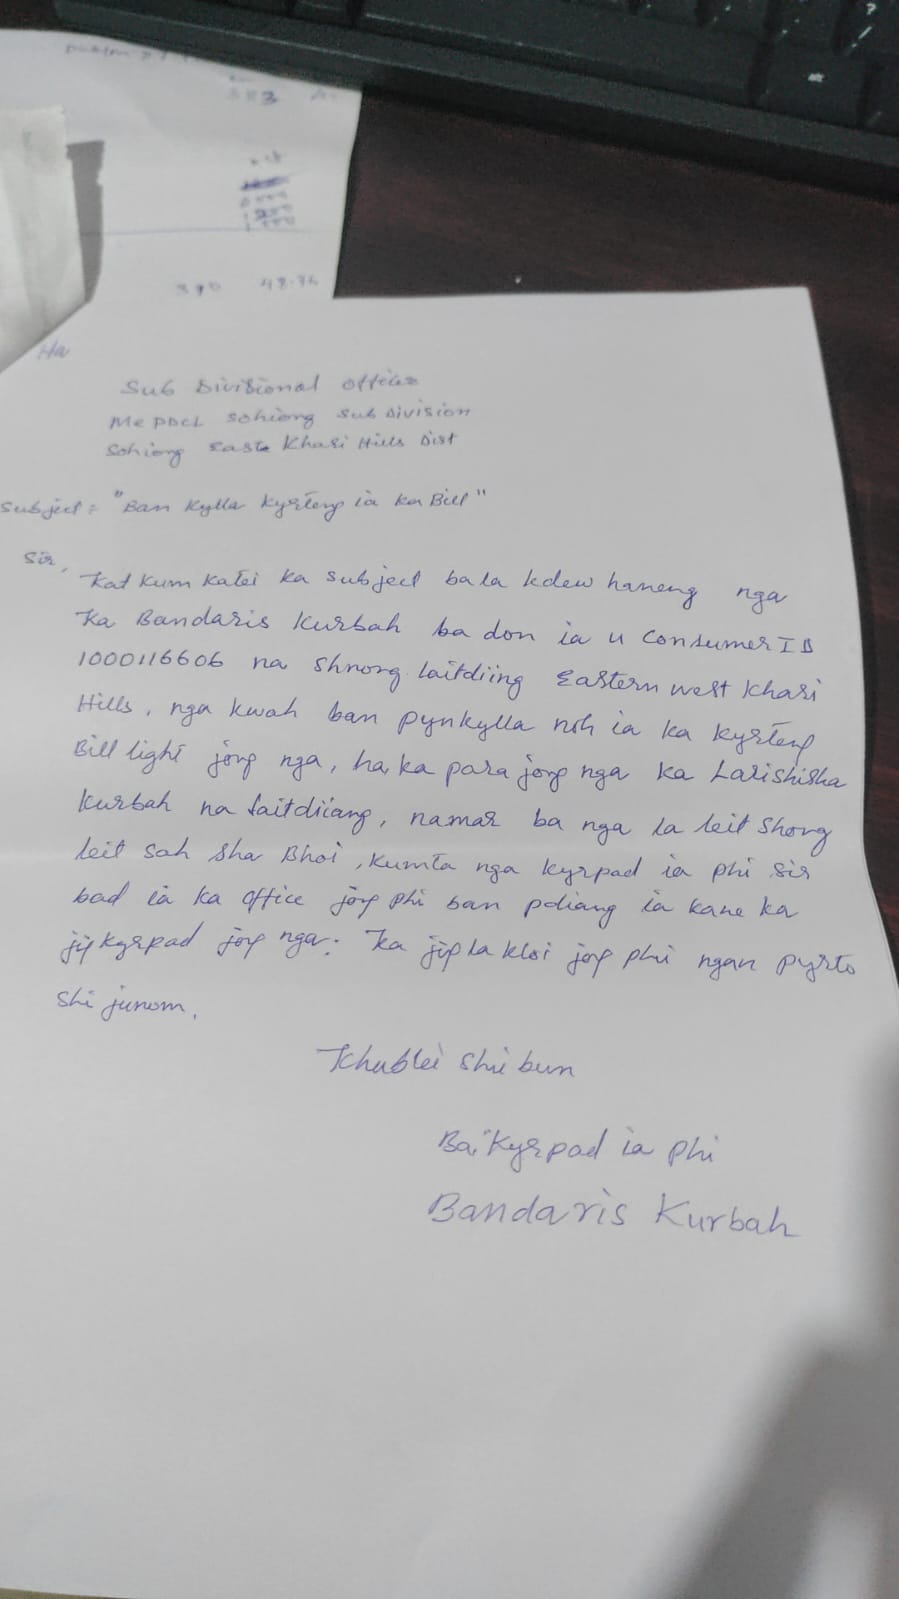 583
390 48.76
Ha
Sub Divisional Office
MePDCL Sohiong Sub Division
Sohiong East Khasi Hills Dist
Subject: "Ban Kylla Kyrteng ia ka Bill"
Sir,
Kat kum katei ka subject ba la kdew haneng nga
Ka Bandaris Kurbah ba don ia u Consumer ID
1000116606 na shnong laitdiing Eastern west Khasi
Hills, nga kwah ban pynkylla noh ia ka kyrteng
Bill light jong nga, ha ka para jong nga ka Larishisha
Kurbah na laitdiang, namar ba nga la leit shong
leit sah sha Bhoi, kumta nga kyrpad ia phi sir
bad ia ka office jong phi ban pdiang ia kane ka
jingkyrpad jong nga: Ka jing la kloi jong phi ngan pyrto
shi junom.
Khublei shi bun
Ba kyrpad ia phi
Bandaris Kurbah